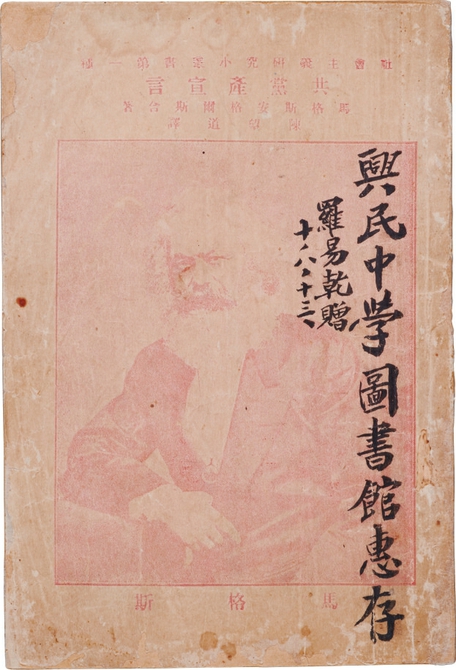 社會主義研究小叢書第一種
共黨產宣言
馬格斯安格爾斯合著
陳望道譯
興民中學圖書館惠存
羅易乾贈
十、八、十三、
馬格斯